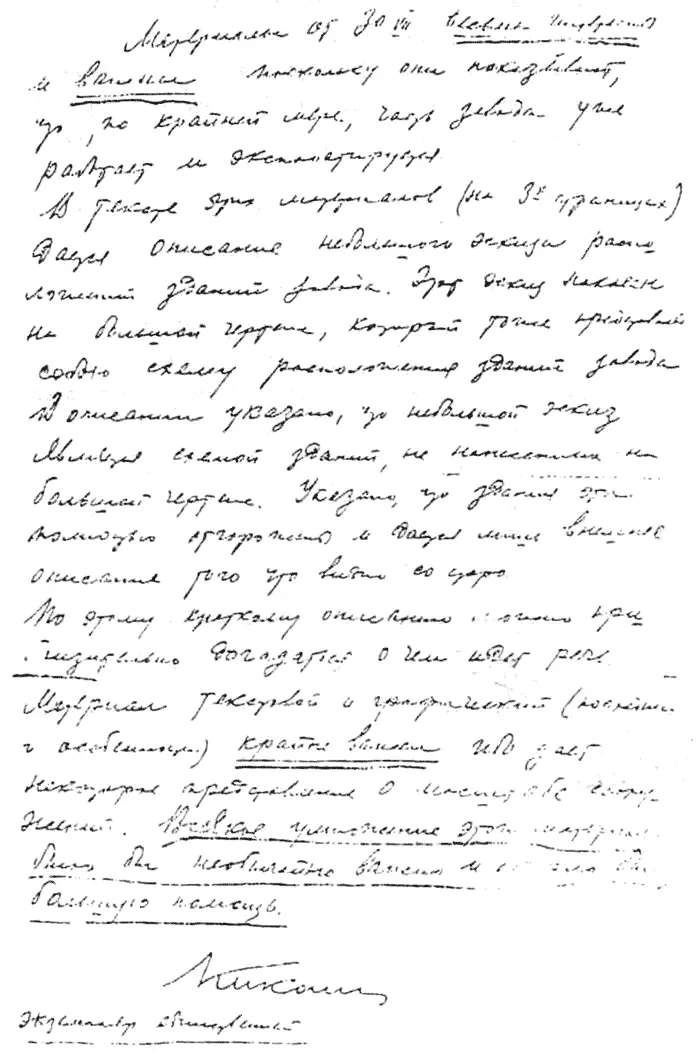 Материалы от 30 VII весьма интересны
и важны поскольку они показывают,
что, по крайней мере, часть завода уже
работает и эксплоатируется
В тексте этих материалов (на 3х страницах)
дается описание небольшого эскиза распо
ложений зданий завода. Этот эскиз
на большой чертеж, который тоже
собою схему расположения зданий завода
В описании указано, что небольшой эскиз
является схемой зданий, не нанесенных на
большой чертеж. Указано, что здания эти
полностью отгорожены и дается лишь внешнее
описание того что видно со
По этому краткому описанию можно при
близительно догадаться о чем идет речь
Материал текстовой и графический (последний
в особенности) крайне важен ибо дает
некоторое представление о масштабе соору
жений. Всякое уточнение этого материала
было бы необычайно важно и
большую помощь.
Кикоин